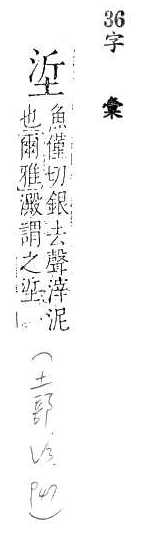 36字彙
垽
魚僅切銀去聲滓泥
也爾雅澱謂之垽
(土部